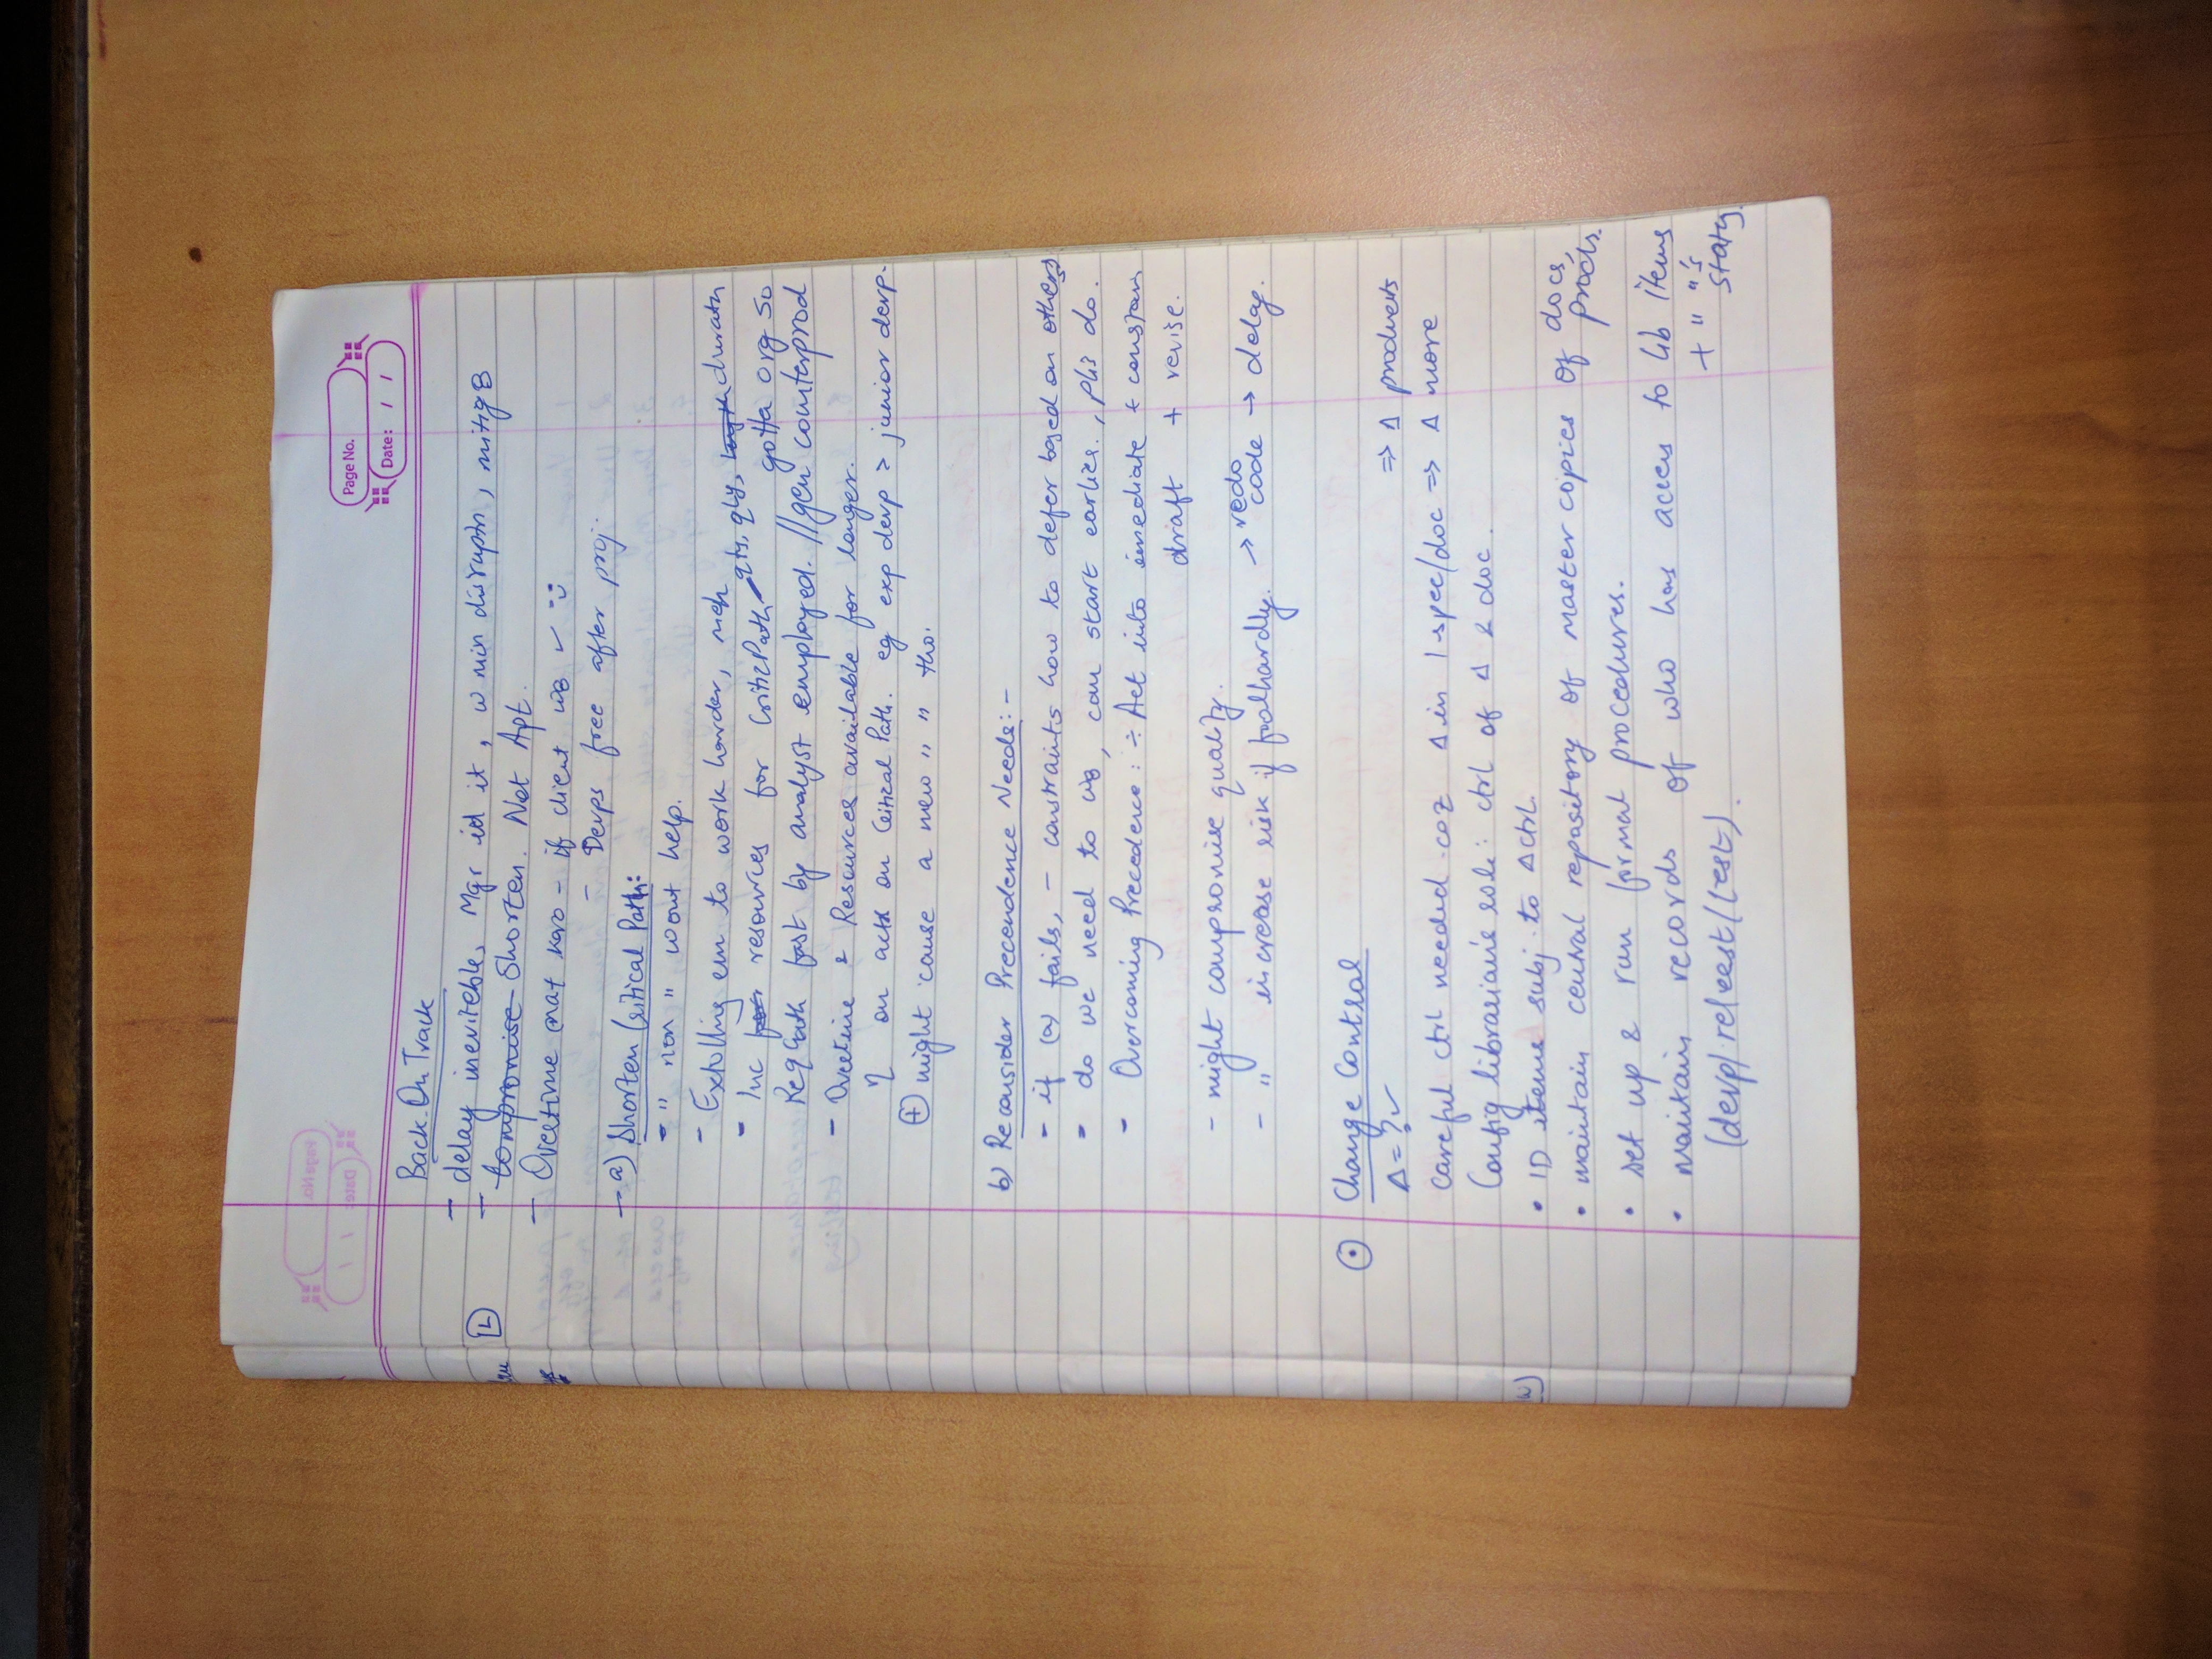 Page No.
Date: / /
Back On Track
- delay inevitable, Mgr id it, w min disruptn, mitig8
L
- compromise Shorten. Not Apt.
- Overtime mat karo - if client w8 ✓ ::
- Devps free after proj.
- a) Shorten Critical Path:
- " non " wont help.
- Exholling em to work harder, durath
- Inc resources for CriticPath qty, qly, gotta org so
Req Gath fast by analyst employed. //gen counterprod
- Overtime & Resources available for longer.
on acts on Critical Path. eg exp devp > junior devp.
+ might cause a new " " " tho.
b) Reconsider Precendence Needs:-
- if (a) fails, - constraints how to defer based on others
- do we need to w8, can start earlier, pls do.
- Overcoming Precedence: ÷ Act into immediate + constrain
draft + revise.
- might compromise quality.
- " increase risk if foolhardy. → redo code → delay.
Change Control
Δ = ? ✓ ⇒ Δ products
careful ctrl needed coz Δ in 1 spec/doc ⇒ Δ more
Config librarians role: ctrl of Δ & doc.
• ID items subj. to Δ ctrl.
• maintain central repository of master copies of docs, prods.
• set up & run formal procedures.
• maintain records of who has access to lib items
+ " "'s status.
(devp/releest/test).